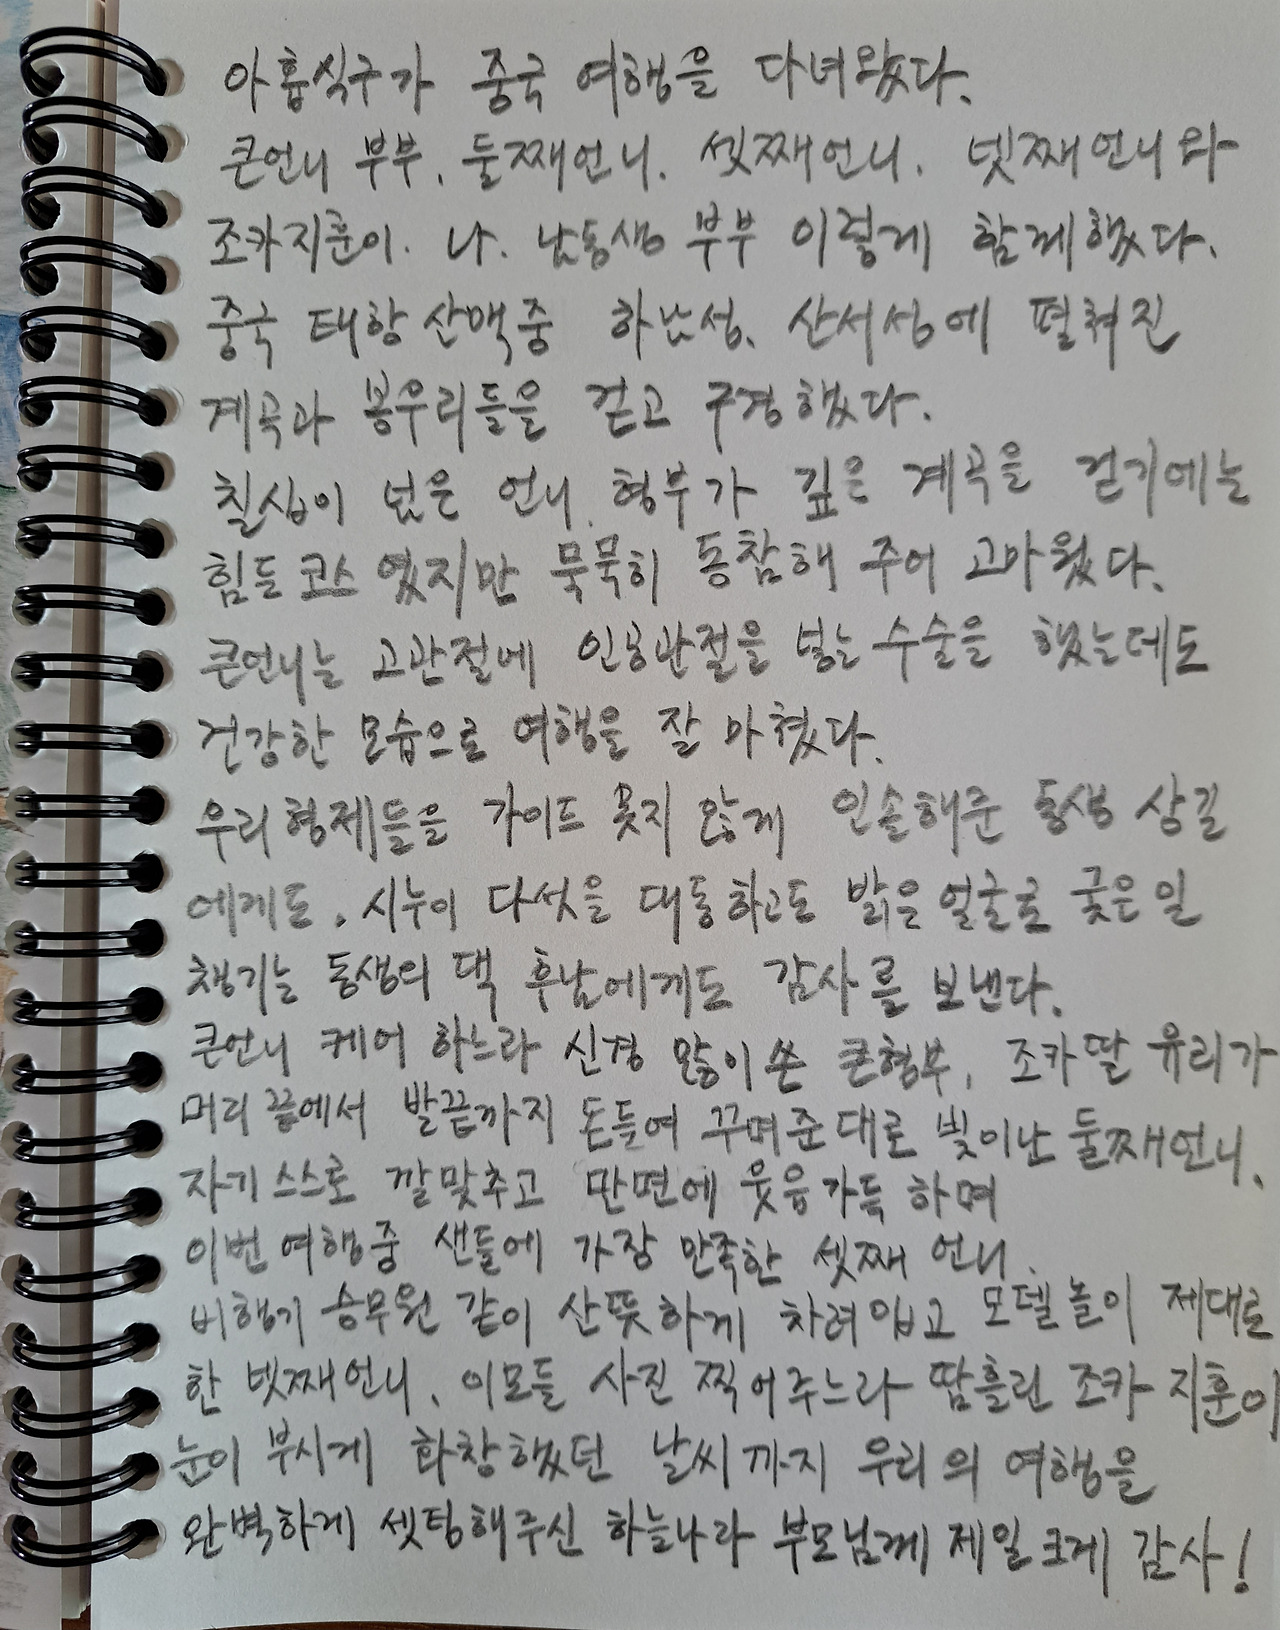 아홉식구가 중국 여행을 다녀왔다.
큰언니 부부, 둘째언니. 셋째언니. 넷째언니와
조카지훈이. 나. 남동생 부부 이렇게 함께했다.
중국 태항산맥중 하남성. 산서성에 펼쳐진
계곡과 봉우리들을 걷고 구경했다.
칠십이 넘은 언니. 형부가 깊은 계곡을 걷기에는
힘든 코스 였지만 묵묵히 동참해 주어 고마웠다.
큰언니는 고관절에 인공관절을 넣는 수술을 했는데도
건강한 모습으로 여행을 잘 마쳤다.
우리 형제들을 가이드 못지 않게 인솔해준 동생 상길
에게도. 시누이 다섯을 대동하고도 밝은 얼굴로 궂은 일
챙기는 동생의 댁 후남에게도 감사를 보낸다.
큰언니 케어 하느라 신경 많이 쓴 큰형부, 조카딸 유리가
머리 끝에서 발끝까지 돈들여 꾸며준대로 빛이난 둘째언니.
자기 스스로 깔맞추고 만면에 웃음 가득 하며
이번 여행중 샌들에 가장 만족한 셋째 언니.
비행기 승무원 같이 산뜻하게 차려입고 모델놀이 제대로
한 넷째언니. 이모들 사진 찍어주느라 땀흘린 조카 지훈이
눈이 부시게 화창했던 날씨까지 우리의 여행을
완벽하게 셋팅해주신 하늘나라 부모님께 제일 크게 감사!